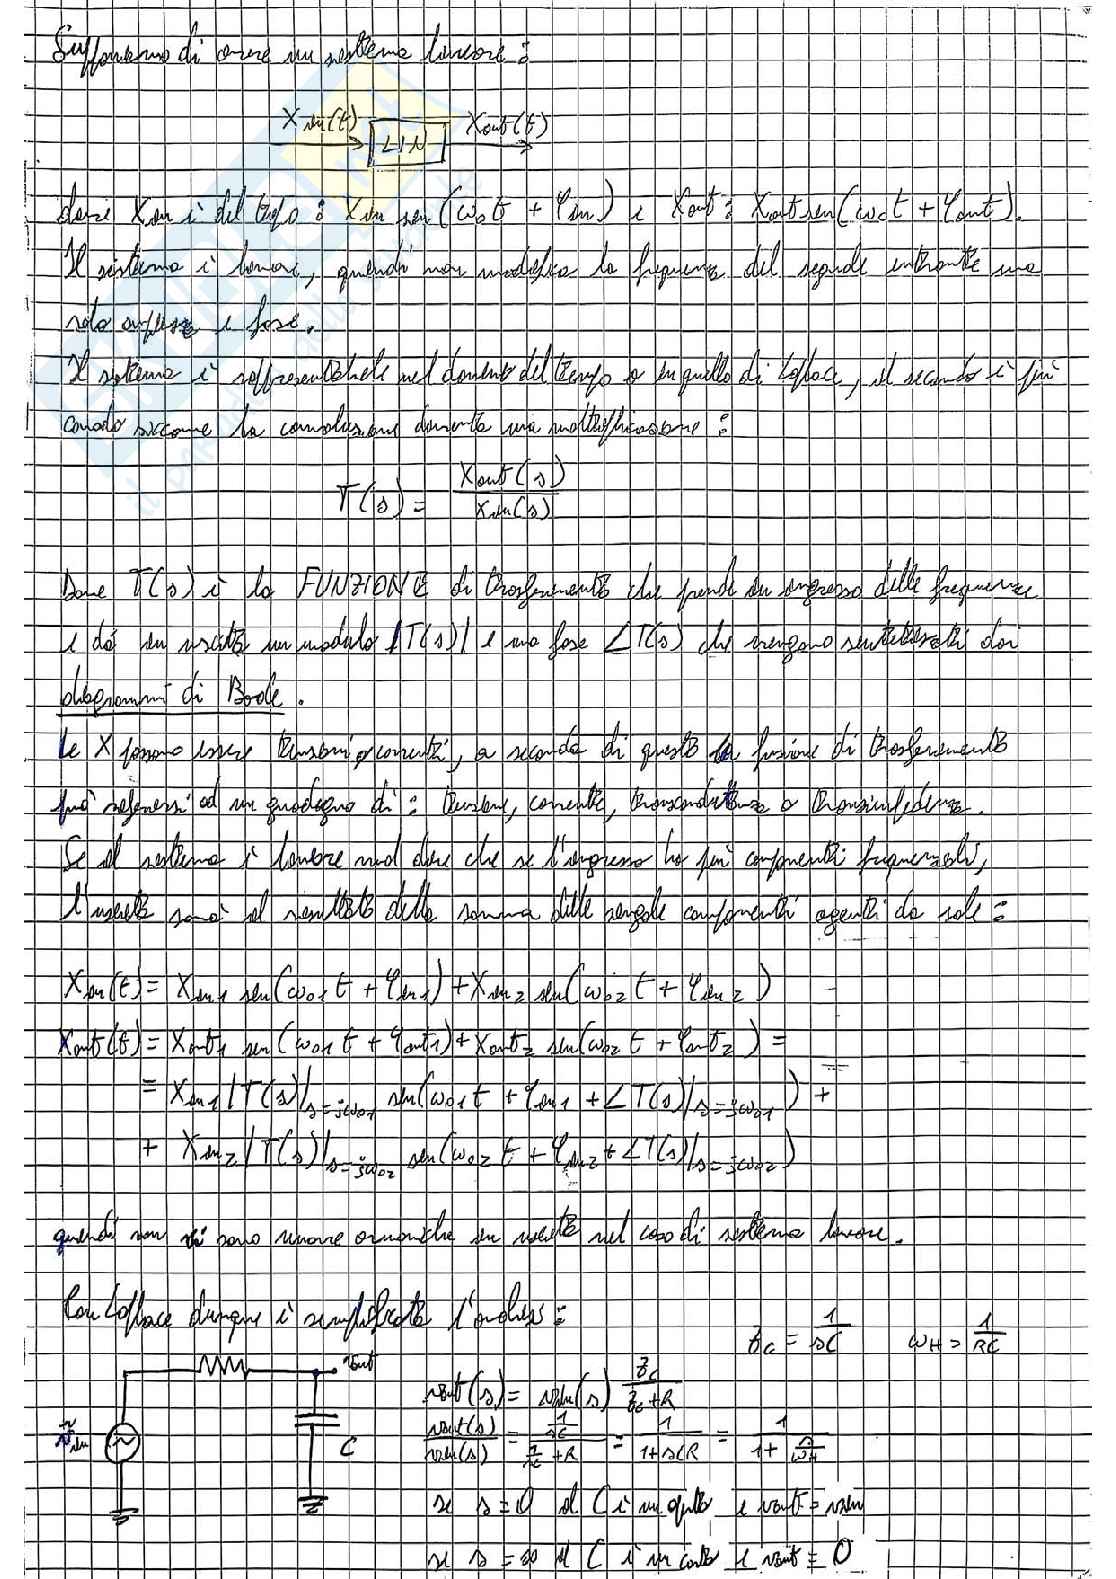 Supponiamo di avere un sistema lineare:
Xin(t) LIN Xout(t)
dove Xin è del tipo: Xin sen(ω₀t + φin) e Xout: Xout sen(ω₀t + φout).
Il sistema è lineare, quindi non modifica la frequenza del segnale entrante ma
solo ampiezza e fase.
Il sistema è rappresentabile nel dominio del tempo o in quello di Laplace, il secondo è più
comodo siccome la convoluzione diventa una moltiplicazione:
T(s) = Xout(s) / Xin(s)
Dove T(s) è la FUNZIONE di trasferimento che prende in ingresso delle frequenze
e dà in uscita un modulo |T(s)| e una fase ∠T(s) che vengono sintetizzati dai
diagrammi di Bode.
Le X possono essere tensioni o correnti, a seconda di questo la funzione di trasferimento
può riferirsi ad un guadagno di: tensione, corrente, transconduttanza o transimpedenza.
Se il sistema è lineare vuol dire che se l'ingresso ha più componenti frequenziali,
l'uscita sarà il risultato della somma delle singole componenti agenti da sole:
Xin(t) = Xin1 sen(ω01 t + φin1) + Xin2 sen(ω02 t + φin2)
Xout(t) = Xout1 sen(ω01 t + φout1) + Xout2 sen(ω02 t + φout2) =
= Xin1 |T(s)|s=jω01 sen(ω01 t + φin1 + ∠T(s)|s=jω01) +
+ Xin2 |T(s)|s=jω02 sen(ω02 t + φin2 + ∠T(s)|s=jω02)
quindi non vi sono nuove armoniche in uscita nel caso di sistema lineare.
Con Laplace dunque è semplificata l'analisi:
Zc = 1/sC ωH = 1/RC
vout
vin
C
vout(s) = vin(s) Zc / Zc + R
vout(s)/vin(s) = 1/sC / 1/sC + R = 1 / 1 + sCR = 1 / 1 + s/ωH
se s = 0 il C è un aperto e vout = vin
se s = ∞ il C è un corto e vout = 0